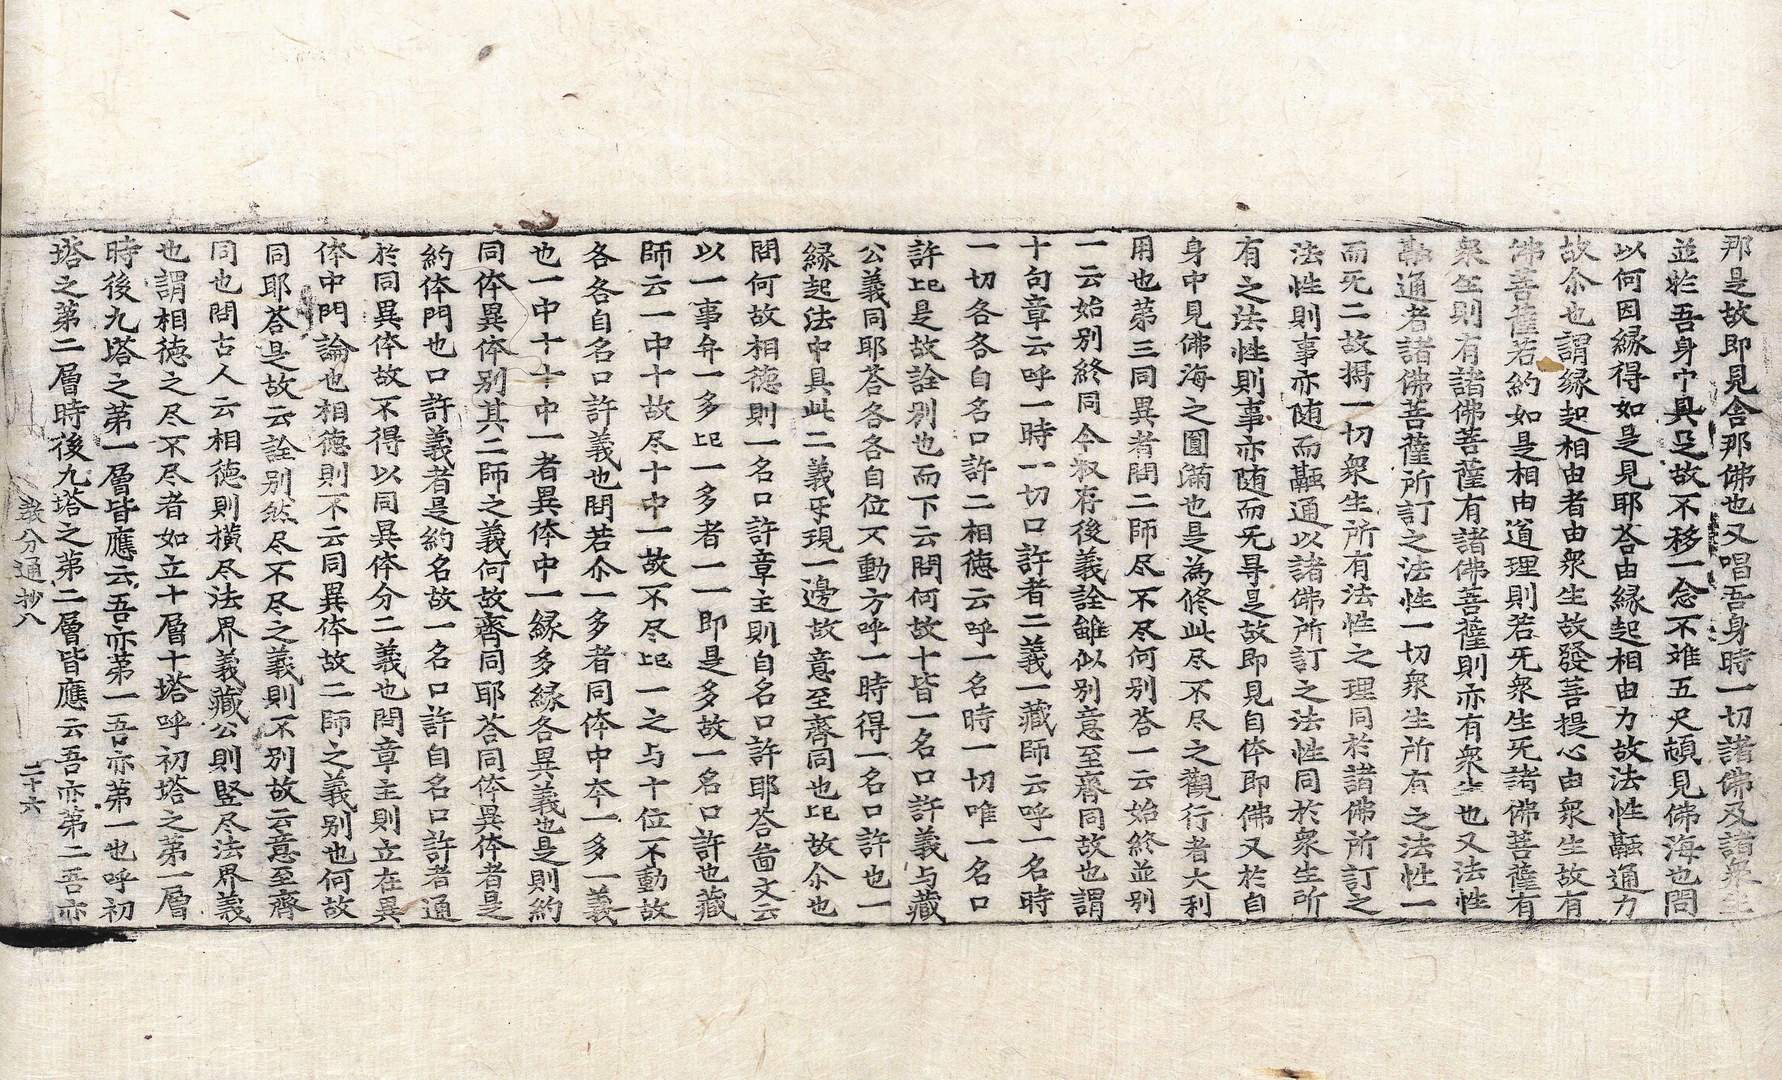 那是故即見舍那佛也又唱吾身時一切諸佛及諸衆生
並於吾身中具足故不移一念不難五尺頓見佛海也問
以何因縁得如是見耶荅由縁起相由力故法性融通力
故尒也謂縁起相由者由衆生故發菩提心由衆生故有
佛菩薩若約如是相由道理則若无衆生无諸佛菩薩有
衆生則有諸佛菩薩有諸佛菩薩則亦有衆生也又法性
融通者諸佛菩薩所訂之法性一切衆生所有之法性一
而无二故擧一切衆生所有法性之理同於諸佛所訂之
法性則事亦随而融通以諸佛所訂之法性同於衆生所
有之法性則事亦随而无㝵是故即見自体即佛又於自
身中見佛海之圓滿也是為修此尽不尽之觀行者大利
用也第三同異者問二師尽不尽何别荅一云始終並别
一云始别終同今叔存後義詮雖似别意至齊同故也謂
十句章云呼一時一切口許者二義一藏師云呼一名時
一切各各自名口許二相徳云呼一名時一切唯一名口
許㔾是故詮别也而下云問何故十皆一名口許義与藏
公義同耶荅各各自位不動方呼一時得一名口許也一
縁起法中具此二義㸦現一邊故意至齊同也㔾故尒也
問何故相徳則一名口許章主則自名口許耶荅啚文云
以一事弁一多㔾一多者一一即是多故一名口許也藏
師云一中十故尽十中一故不尽㔾一之与十位不動故
各各自名口許義也問若尒一多者同体中夲一多一義
也一中十十中一者異体中一縁多縁各異義也是則約
同体異体别其二師之義何故齊同耶荅同体異体者是
約体門也口許義者是約名故一名口許自名口許者通
於同異体故不得以同異体分二義也問章主則立在異
体中門論也相徳則不云同異体故二師之義别也何故
同耶荅是故云詮别然尽不尽之義則不别故云意至齊
同也問古人云相徳則橫尽法界義藏公則竪尽法界義
也謂相徳之尽不尽者如立十層十塔呼初塔之第一層
時後九塔之第一層皆應云吾亦第一吾亦第一也呼初
塔之第二層時後九塔之第二層皆應云吾亦第二吾亦
教分通抄八
二十六